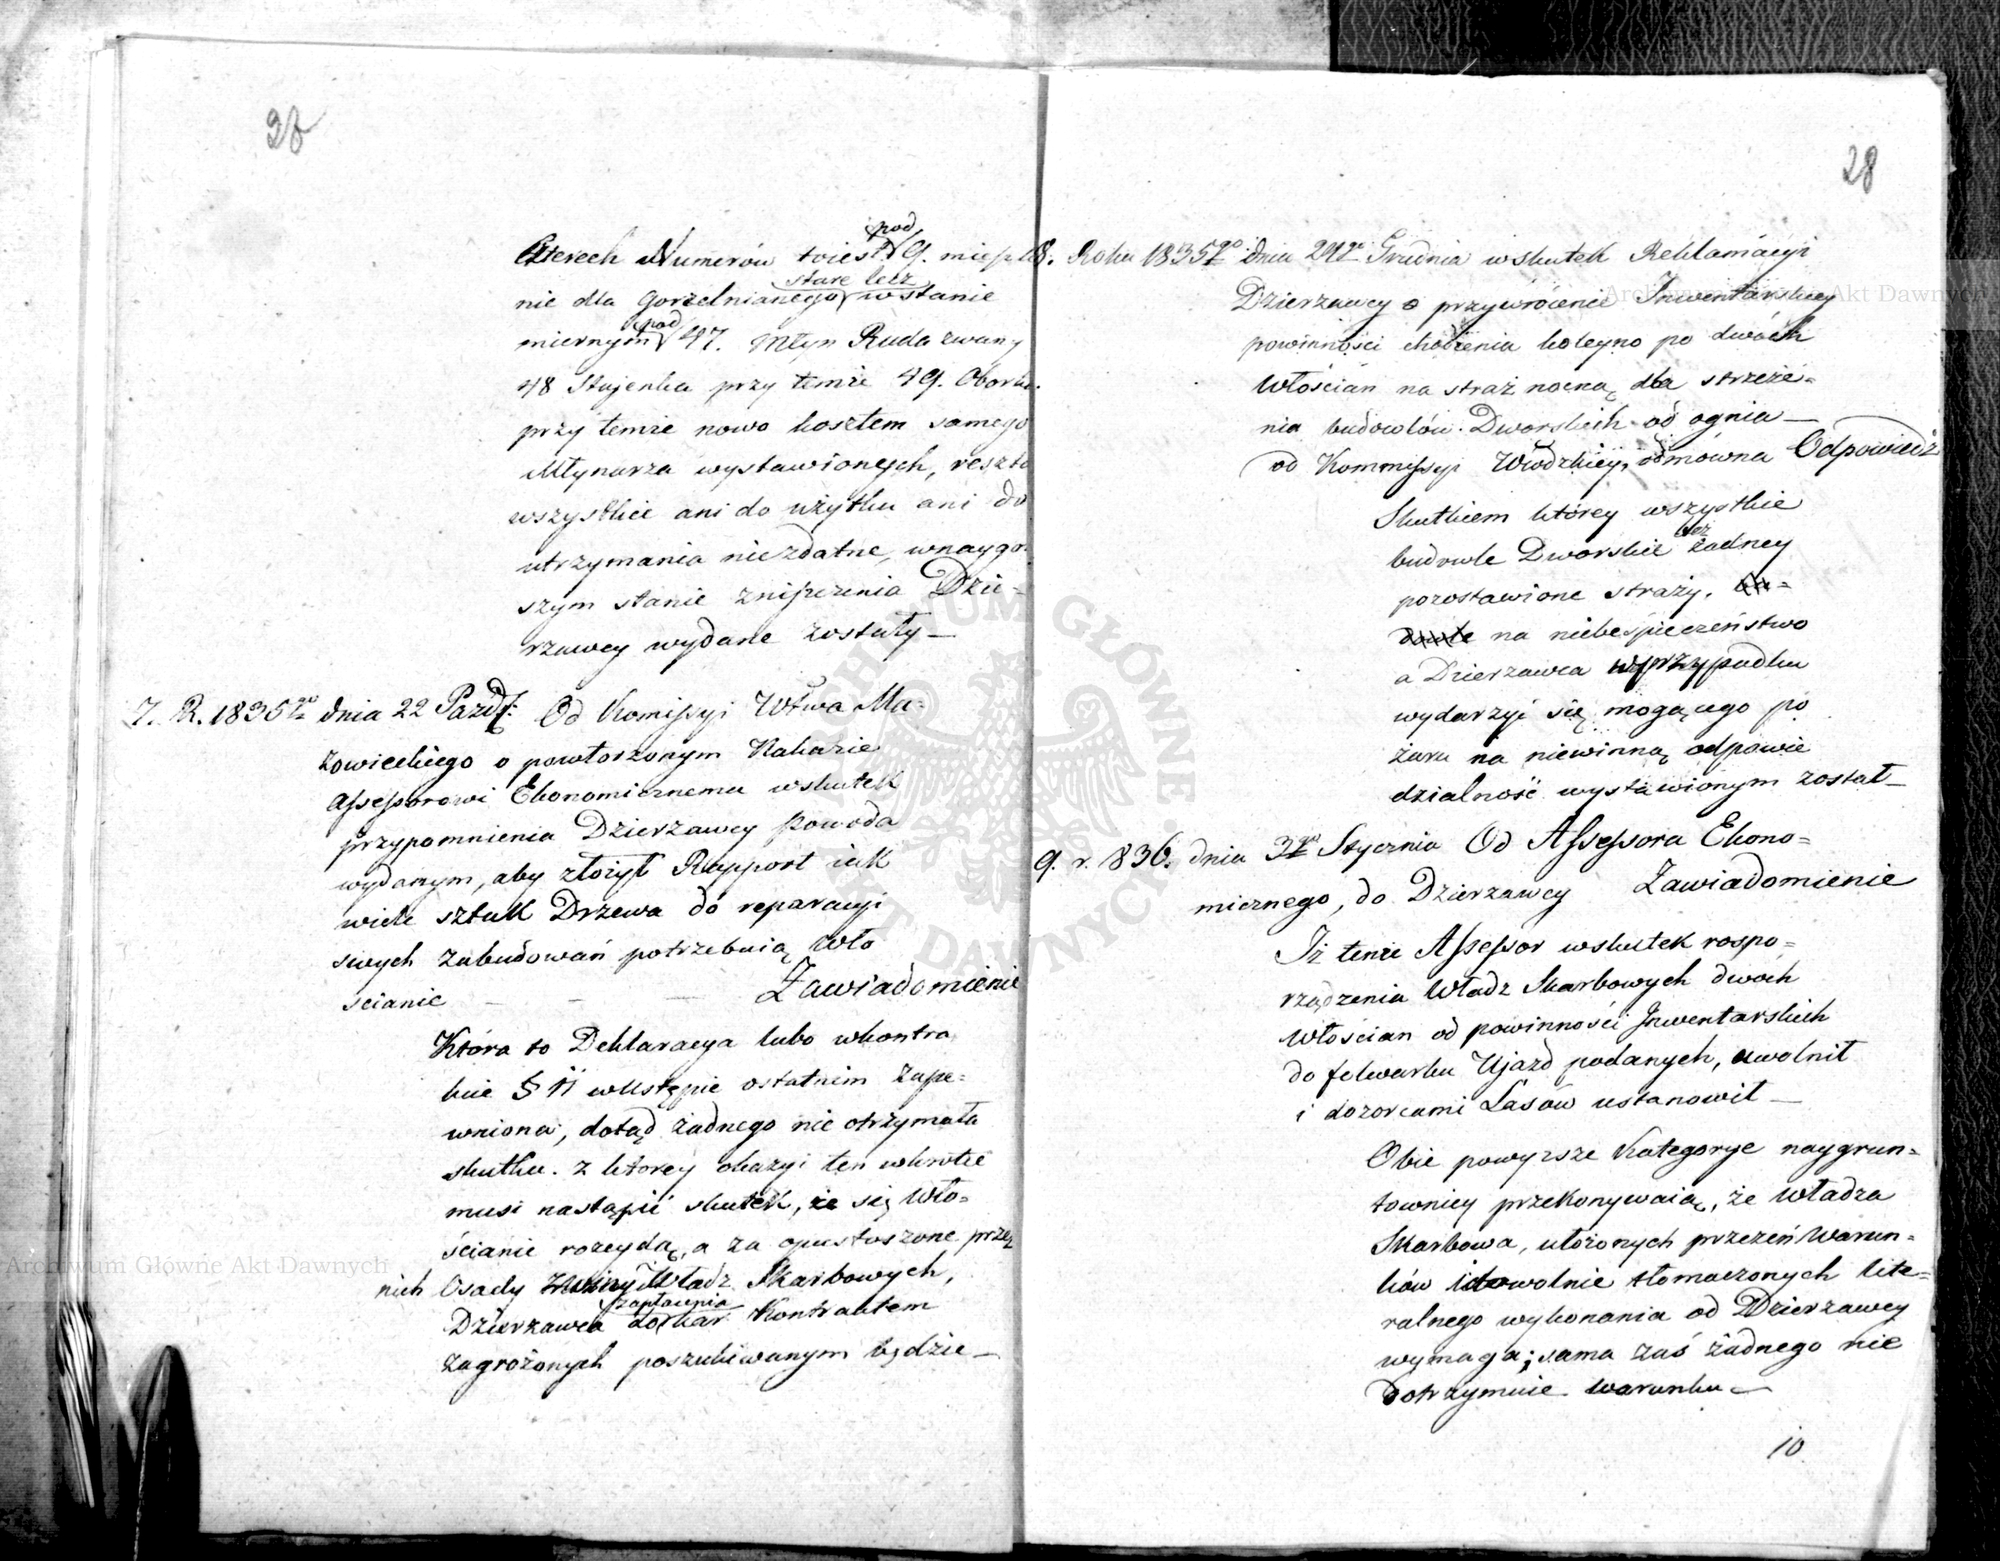 28
Czterech Numerów toiest pod 9. miesz
nie dla Gorzelnianego stare lecz wstanie
miernym pod 47. Młyn Ruda zwany
48 Stajenka przy temże 49. Oborka
przy temże nowo kosztem samego
Młynarza wystawionych, reszta
wszystkie ani do użytku ani do
utrzymania niezdatne, wnaygor
szym stanie zniszczenia Dzie-
rzawcy wydane zostały —
7. R. 1835go dnia 22 Paźdz: Od Komissyi Wtwa Ma-
zowieckiego o powtorzonym Nakazie
Assessorowi Ekonomicznemu wskutek
przypomnienia Dzierzawcy powoda
wydanym, aby złożył Rapport iak
wiele sztuk Drzewa do reparacyi
swych zabudowań potrzebuią Wło
scianie — — — Zawiadomienie
Która to Deklaracya lubo wkontra
kcie § 11 wUstępie ostatnim zape-
wniona, dotąd żadnego nie otrzymała
skutku. z ktorey okazyi ten wkrotce
musi nastąpić skutek, że się Wło-
ścianie rozeydą, a za opustoszone przez
nich Osady zwiny Władz Skarbowych,
Dzierzawca do zapłacenia kar Kontraktem
zagrożonych poszukiwanym będzie —
28
8. Roku 1835go dnia 24go Grudnia wskutek Reklamacyi
Dzierzawcy o przywrócenie Inwentarskiey
powinności chodzenia koleyno po dwóch
Włościan na straż nocną dla strzeże-
nia budowlów Dworskich od ognia —
od Kommissyi Wwodzkiey, odmówna Odpowiedź
Skutkiem którey wszystkie
budowle Dworskie bez żadney
pozostawione straży,
na niebespieczeństwo
a Dzierzawca wprzypadku
wydarzyć się mogącego po
żaru na niewinną odpowie
dzialność wystawionym został —
9. r. 1836. dnia 3go Stycznia Od Assessora Ekono-
micznego, do Dzierzawcy Zawiadomienie
Iż tenże Assessor wskutek rospo-
rządzenia Władz Skarbowych dwoch
Włościan od powinności Inwentarskich
do folwarku Ujazd podanych, uwolnił
i dozorcami Lasów ustanowił —
Obie powyższe Kategorye naygrun-
towniey przekonywaią, że Władza
Skarbowa, ułożonych przezeń warun-
ków idowolnie tłomaczonych lite-
ralnego wykonania od Dzierzawcy
wymaga; sama zaś żadnego nie
dotrzymuie warunku —
10
Archiwum Główne Akt Dawnych
Archiwum Główne Akt Dawnych
ARCHIWUM GŁÓWNE AKT DAWNYCH